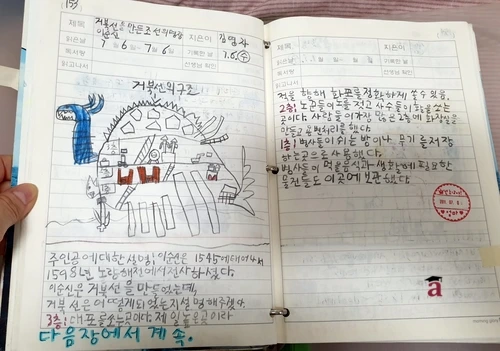 159
제목
거북선을 만든 조선의 명장
이순신
지은이
김영자
독서일
7월 6일 ~ 7월 6일
기록한 날
7.6.(수)
읽고나서
선생님 확인
거북선의 구조
3층
2층
1층
주인공에 대한 설명, 이순신은 1545에 태어나서
1598년 노량해전에서 전사하셨다.
이순신은 거북선을 만들었는데,
거북선은 어떻게 되었는지 설명해주겠다.
3층! 대포를 쏘는 곳이다. 제일 높은 곳이라
다음장에서 계속.
제목
지은이
독서일
기록한 날
읽고나서
선생님 확인
적을 향해 화포를 정확하게 쏠 수 있음.
2층! 노꾼들이 노를 젓고 사수들이 활을 쏘는
곳이다. 사람들이 가장 많은 2층에 화장실을
만들고 용변처리를 했다.
1층! 병사들이 쉬는 방이나 무기를 저장
하는 곳으로 사용했다.
병사들이 먹을 음식과 생활에 필요한
물건들도 이곳에 보관했다.
a